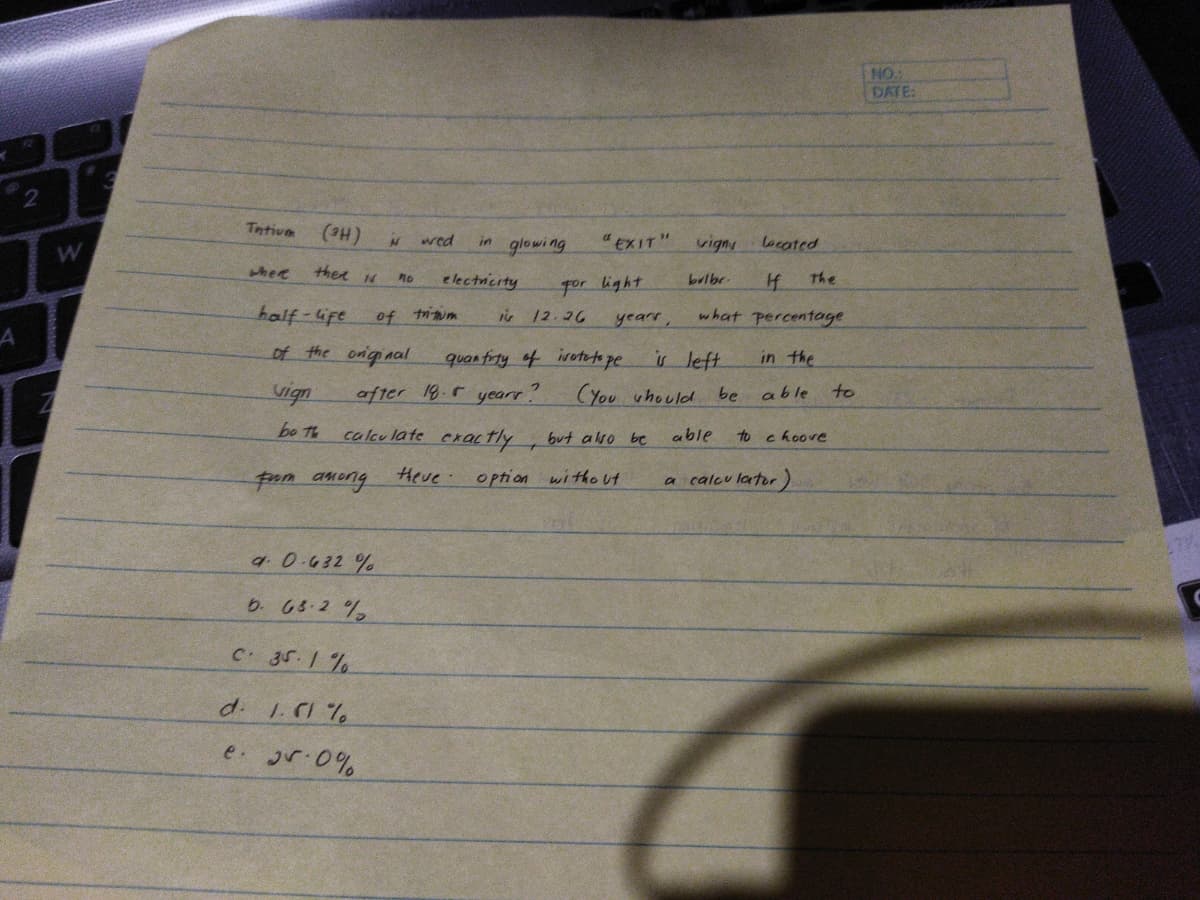 NO.:
DATE:
Tritium (3H) is used in glowing "EXIT" signs located
where there is no electricity for light bulbs. If The
half-life of tritium is 12.26 years, what percentage
of the original quantity of isototope is left in the
sign after 18.5 years? (You should be able to
both calculate exactly, but also be able to choose
from among these option without a calculator)
a. 0.632 %
b. 63.2 %
c. 35.1 %
d. 1.51 %
e. 25.0%
2
3
W
A
Z